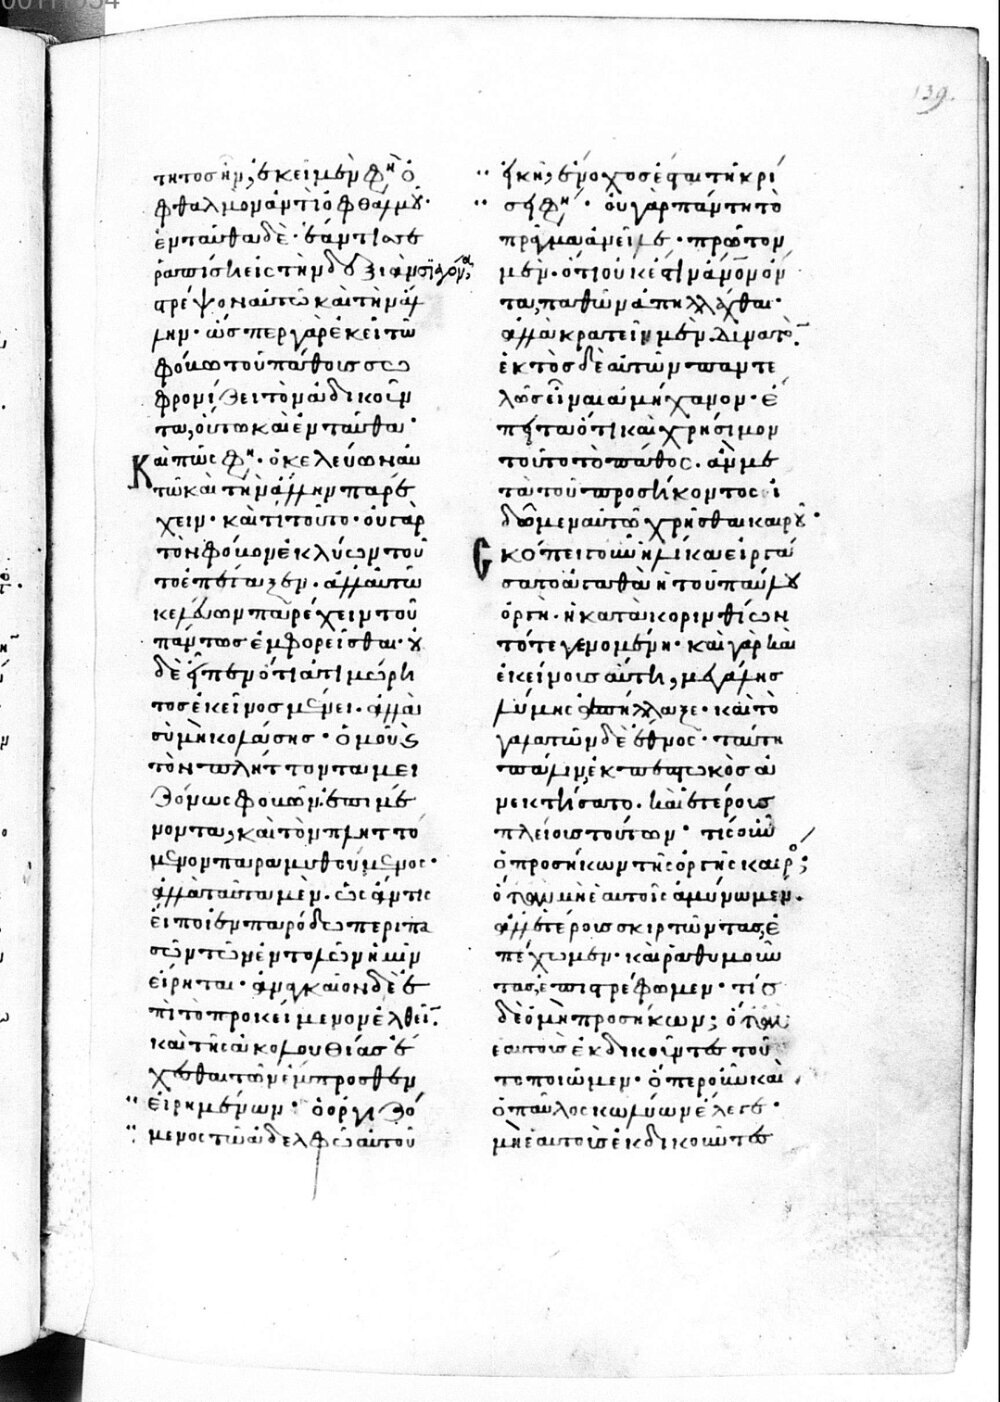 139.
τητος ἦν, ἐκεῖ μὲν φη ὀ
φθαλμὸν ἀντὶ ὀφθαλμοῦ·
ἐνταῦθα δὲ· ἐάν τις σε
ραπίσῃ εἰς τὴν δεξιὰν σιαγόνα,
στρέψον αὐτῷ καὶ τὴν ἄλ
λην· ὥσπερ γὰρ ἐκεῖ τῷ
φόβῳ τοῦ παθεῖν σω
φρονίζει τὸν ἀδικοῦν
τα, οὕτω καὶ ἐνταῦθα·
Καὶ πῶς φη· ὁ κελεύων αὐ
τῷ καὶ τὴν ἄλλην παρέ
χειν· καὶ τί τοῦτο· οὐ γὰρ
τὸν φόβον ἐκλύων τοῦ
το ἐπέταξεν· ἀλλ' αὐτῷ
κελεύων παρέχειν τοῦ
παντὸς ἐμφορεῖσθαι· οὐ
δὲ εἶπεν ὅτι ἀτιμώρη
τος ἐκεῖνος μένει· ἀλλὰ
σὺ μὴ κολάσῃς· ὁμοῦ καὶ
τὸν πλήττοντα μει
ζόνως φοβῶν, ἐπιμέ
νοντα, καὶ τὸν πληττό
μενον παραμυθούμενος·
ἀλλὰ ταῦτα μὲν· ὡς ἄν τις
εἴποι ἐν παρόδῳ περὶ πα
σῶν τῶν ἐντολῶν ἡμῖν
εἴρηται· ἀναγκαῖον δὲ ἐ
πὶ τὸ προκείμενον ἐλθεῖν·
καὶ τῆς ἀκολουθίας ἔ
χεσθαι τῶν ἔμπροσθεν
εἰρημένων· ὁ ὀργιζό
μενος τῷ ἀδελφῷ αὐτοῦ
εἰκῆ, ἔνοχος ἔσται τῇ κρί
σει φη· οὐ γὰρ πάντη τὸ
πρᾶγμα ἀνεῖλε· πρῶτον
μὲν· ὅτι οὐκ ἔστιν ἄνθρωπον ὄν
τα, παθῶν ἀπηλλάχθαι·
ἀλλὰ κρατεῖν μὲν δυνατόν·
ἐκτὸς δὲ αὐτῶν παντε
λῶς εἶναι ἀμήχανον· ἔ
πειτα ὅτι καὶ χρήσιμον
τοῦτο τὸ πάθος· ἂν με
τὰ τοῦ προσήκοντος εἰ
δῶμεν αὐτῷ χρῆσθαι καιροῦ·
Σκόπει γοῦν ἡλίκα εἰργά
σατο ἀγαθὰ ἡ τοῦ παύλου
ὀργὴ· ἡ κατὰ κορινθίων
τότε γενομένη· καὶ γὰρ καὶ
ἐκείνοις αὕτη, μεγάλης
λύμης ἀπήλλαξε· καὶ τὸ
γαλατῶν δὲ ἔθνος· ταύτῃ
πάλιν, ἐκπεπτωκὸς ἀ
νεκτήσατο· καὶ ἑτέρους
πλείους τούτων· τίς οὖν
ὁ προσήκων τῆς ὀργῆς καιρός;
ὅταν μὴ ἑαυτοῖς ἀμύνωμεν·
ἀλλ' ἑτέρους σκιρτῶντας, ἐ
πέχωμεν· καὶ ῥαθυμοῦν
τας, ἐπιστρέφωμεν· τίς
δὲ ὁ μὴ προσήκων; ὅταν
ἑαυτοὺς ἐκδικοῦντες τοῦ
το ποιῶμεν· ὅπερ οὖν καὶ
ὁ παῦλος κωλύων ἔλεγε·
μὴ ἑαυτοὺς ἐκδικοῦντες